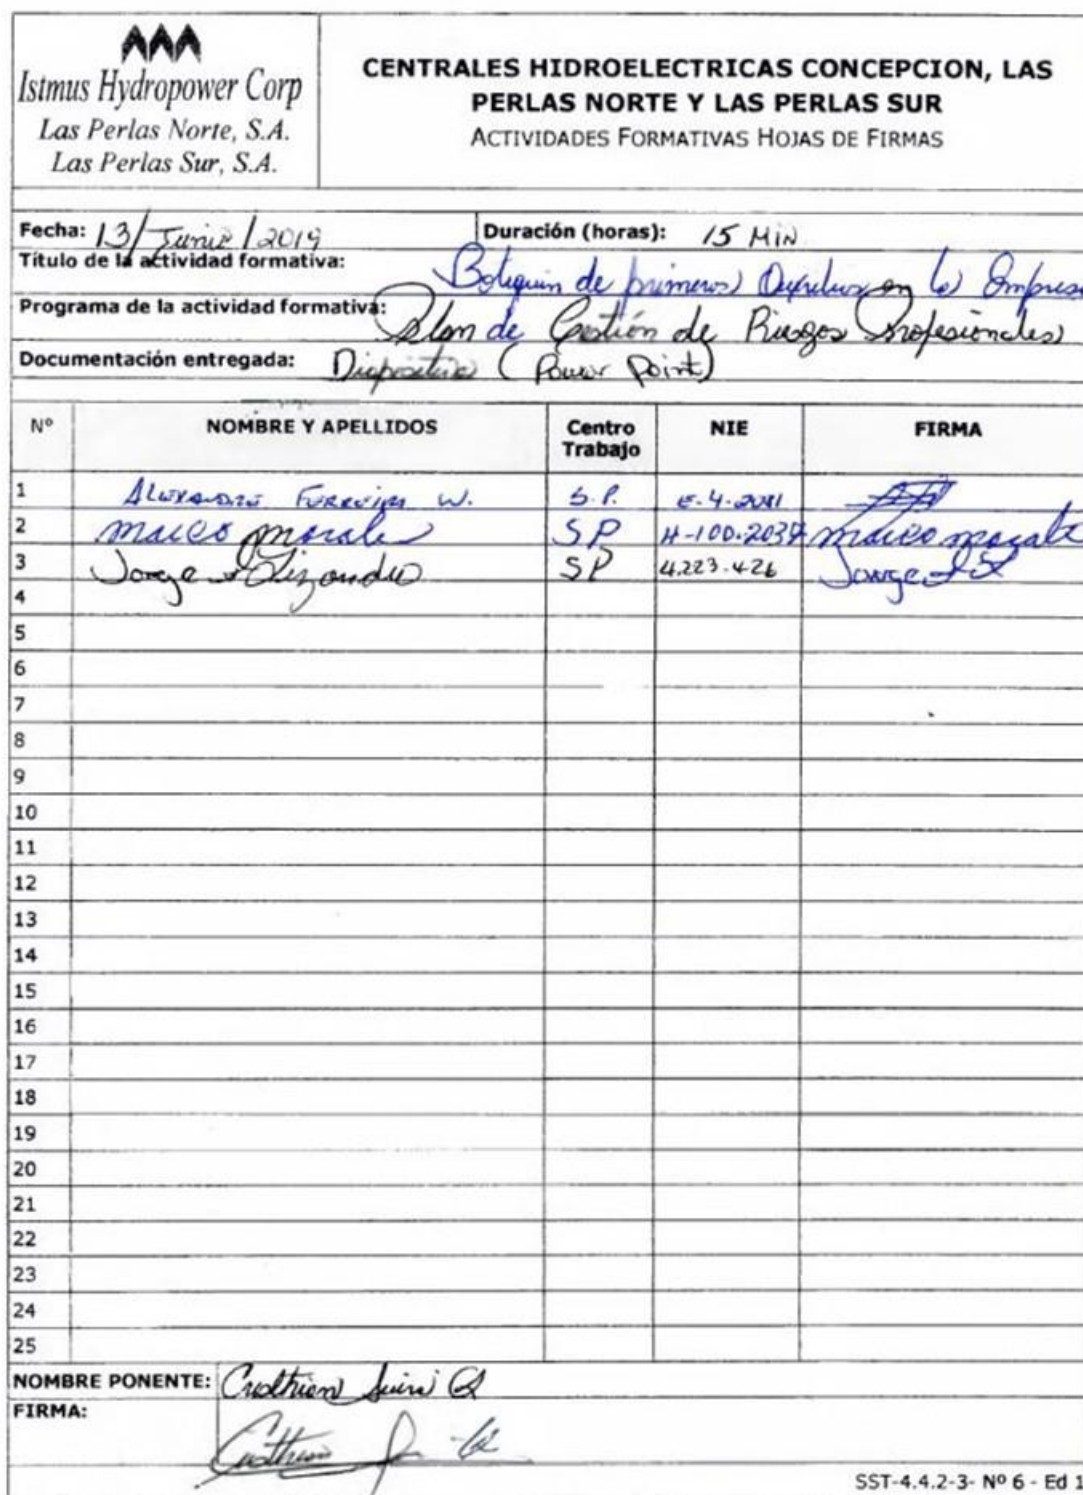 Istmus Hydropower Corp
Las Perlas Norte, S.A.
Las Perlas Sur, S.A.
CENTRALES HIDROELECTRICAS CONCEPCION, LAS
PERLAS NORTE Y LAS PERLAS SUR
ACTIVIDADES FORMATIVAS HOJAS DE FIRMAS
Fecha: 13/Junio/2019 Duración (horas): 15 MIN
Título de la actividad formativa: Botiquin de primeros Auxilios en la Empresa
Programa de la actividad formativa: Plan de Gestión de Riesgos Profesionales
Documentación entregada: Diapositiva (Power Point)
Nº NOMBRE Y APELLIDOS Centro Trabajo NIE FIRMA
1 W. S.P.
2 Morales SP
3 Jorge SP 4.223.426 Jorge
4
5
6
7
8
9
10
11
12
13
14
15
16
17
18
19
20
21
22
23
24
25
NOMBRE PONENTE:
FIRMA:
SST-4.4.2-3- Nº 6 - Ed 1